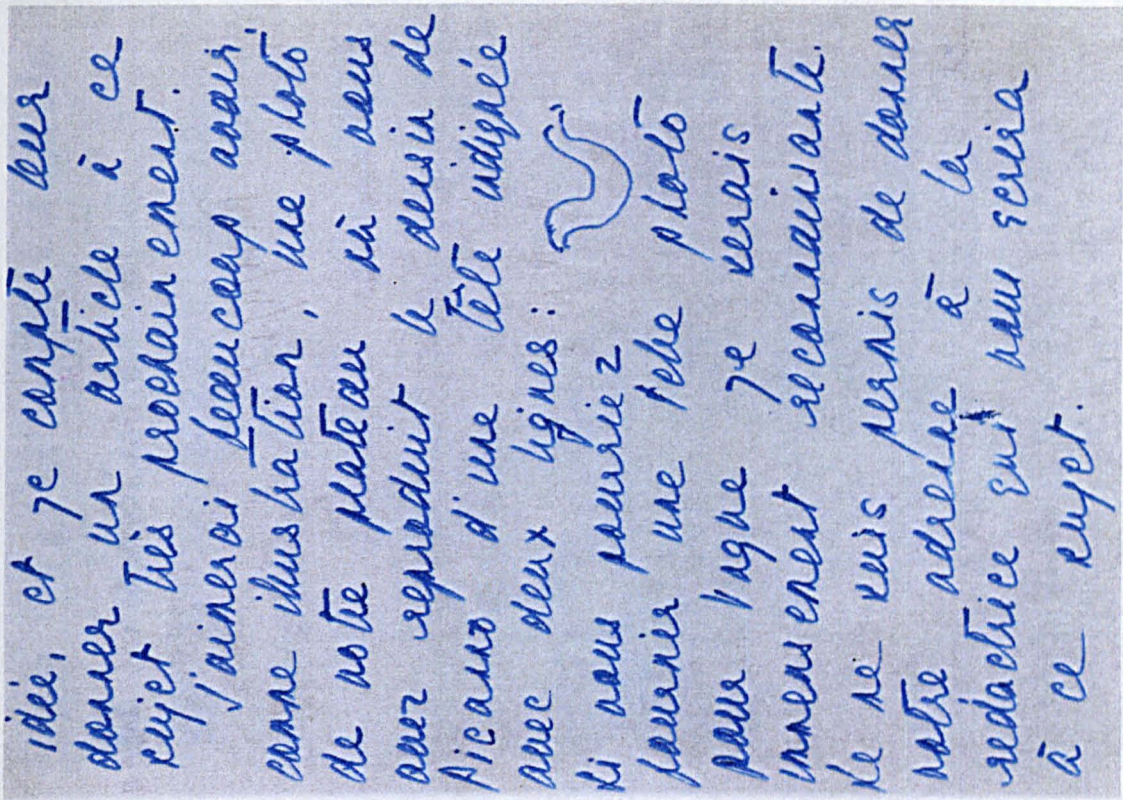 idée, et je compte leur
donner un article à ce
sujet très prochainement.
J'aimerai beaucoup avoir,
comme illustration, une photo
de votre plateau où vous
avez reproduit le dessin de
Picasso d'une tête indiquée
avec deux lignes :
Si vous pourriez
fournir une telle photo
pour Vogue je serais
immensement reconnaissante.
Je me suis permis de donner
votre adresse à la
rédactrice qui vous écrira
à ce sujet.